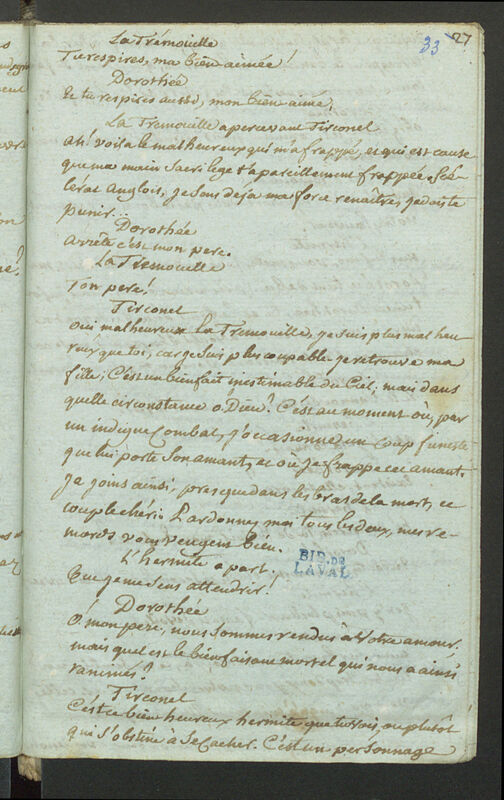 33 27
La Trémouille
Tu respires, ma bien aimée!
Dorothée
Et tu respires aussi, mon bien aimé,
La Tremouille apercevant Tirconel
Ah! voila le malheureux qui m'a frappé, et qui est cause
que ma main sacrilege t'a pareillement frappée. Scé-
lérat Anglois, je sens deja ma force renaître, je dois te
punir...
Dorothée
Arrête c'est mon pere.
La Tremouille
Ton pere!
Tirconel
Oui malheureux La Tremouille, je suis plus malheu
reux que toi, car je suis plus coupable. Je retrouve ma
fille; C'est un bienfait inestimable du Ciel; mais dans
quelle circonstance ô Dieu! C'est au moment où, par
un indigne Combat, j'occasionne un coup funeste
que lui porte son amant, et où je frappe cet amant.
Je joins ainsi presque dans les bras de la mort, ce
couple chéri. Pardonnez moi tous les deux, mes re-
mords vous vengent bien.
L'hermite a part.
Que je me sens attendrir!
BIB. DE
LAVAL
Dorothée
O! mon pere, nous sommes rendus à votre amour.
mais quel est le bienfaisant mortel qui nous a ainsi
ranimés?
Tirconel
C'est ce bien heureux hermite que tu vois, ou plutôt
qui s'obstine à se Cacher. C'est un personnage